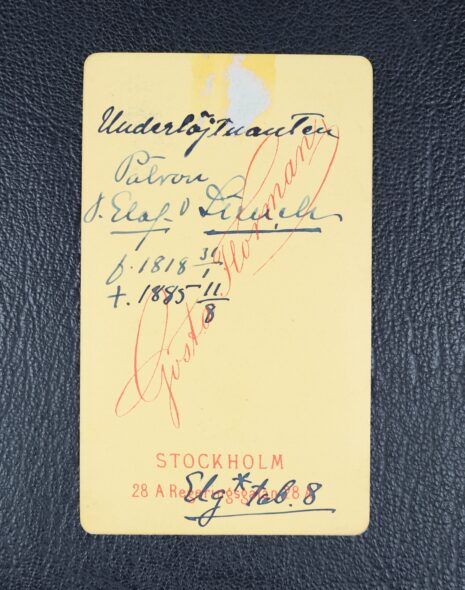 Underlöjtnanten
Patron
Elof
f. 1818 31/1
†. 1885 11/8
Gösta Florman
STOCKHOLM
28 A Regeringsgatan 28 A
Elg* tab. 8